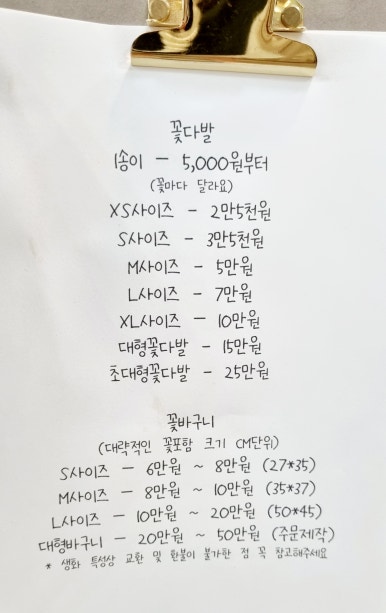 꽃다발
1송이 - 5,000원부터
(꽃마다 달라요)
XS사이즈 - 2만5천원
S사이즈 - 3만5천원
M사이즈 - 5만원
L사이즈 - 7만원
XL사이즈 - 10만원
대형꽃다발 - 15만원
초대형꽃다발 - 25만원
꽃바구니
(대략적인 꽃포함 크기 CM단위)
S사이즈 - 6만원 ~ 8만원 (27*35)
M사이즈 - 8만원 ~ 10만원 (35*37)
L사이즈 - 10만원 ~ 20만원 (50*45)
대형바구니 - 20만원 ~ 50만원 (주문제작)
* 생화 특성상 교환 및 환불이 불가한 점 꼭 참고해주세요